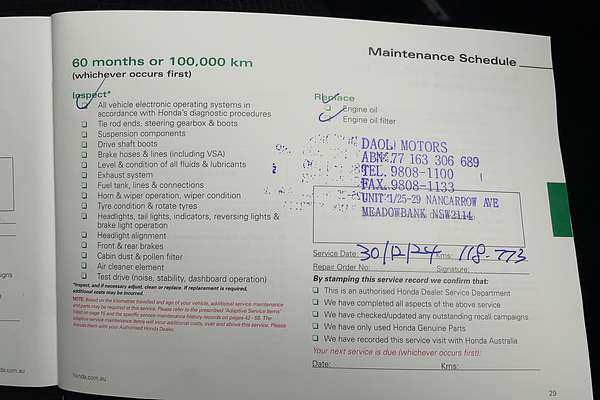 Maintenance Schedule
60 months or 100,000 km
(whichever occurs first)
Inspect*
All vehicle electronic operating systems in
accordance with Honda's diagnostic procedures
Tie rod ends, steering gearbox & boots
Suspension components
Drive shaft boots
Brake hoses & lines (including VSA)
Level & condition of all fluids & lubricants
Exhaust system
Fuel tank, lines & connections
Horn & wiper operation, wiper condition
Tyre condition & rotate tyres
Headlights, tail lights, indicators, reversing lights &
brake light operation
Headlight alignment
Front & rear brakes
Cabin dust & pollen filter
Air cleaner element
Test drive (noise, stability, dashboard operation)
*Inspect, and if necessary adjust, clean or replace. If replacement is required,
additional costs may be incurred.
NOTE: Based on the kilometres travelled and age of your vehicle, additional service maintenance
and parts may be required at this service. Please refer to the prescribed "Adaptive Service Items"
listed on page 15 and the specific service maintenance history records on pages 42 - 55. The
adaptive service maintenance items will incur additional costs, over and above this service. Please
discuss them with your Authorised Honda Dealer.
honda.com.au
Replace
Engine oil
Engine oil filter
DAOL MOTORS
ABN.77 163 306 689
TEL.9808-1100
FAX.9808-1133
UNIT 1/25-29 NANCARROW AVE
MEADOWBANK NSW2114
Service Date: 30/12/24 Kms: 118-773
Repair Order No: Signature:
By stamping this service record we confirm that:
This is an authorised Honda Dealer Service Department
We have completed all aspects of the above service
We have checked/updated any outstanding recall campaigns
We have only used Honda Genuine Parts
We have recorded this service visit with Honda Australia
Your next service is due (whichever occurs first):
Date: Kms:
29